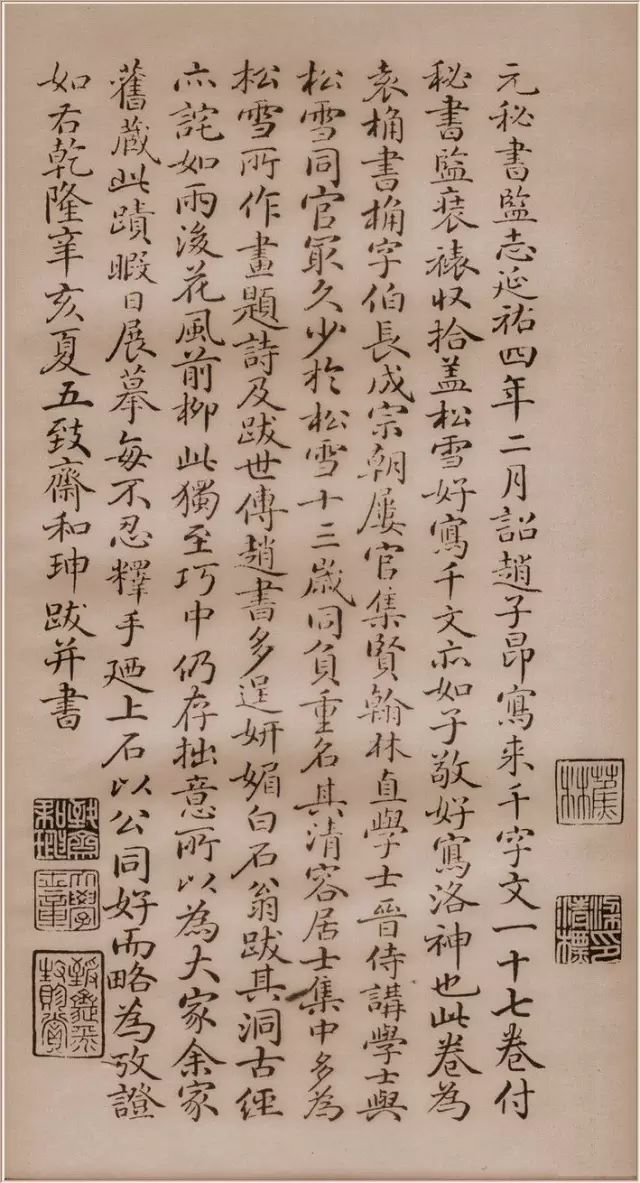 元秘書監志延祐四年二月詔趙子昂寫来千字文一十七卷付
秘書監裒褙収拾盖松雪好寫千文亦如子敬好寫洛神也此卷為
袁桷書桷字伯長成宗朝屢官集賢翰林直學士晉侍講學士與
松雪同官冣久少於松雪十三歲同負重名其清容居士集中多為
松雪所作畫題詩及跋世傳趙書多逞妍媚白石翁跋其洞古經
亦詫如雨後花風前柳此獨至巧中仍存拙意所以為大家余家
舊蔵此蹟暇日展摹每不忍釋手廼上石以公同好而略為攷證
如右乾隆辛亥夏五致齋和珅跋并書
蕉林